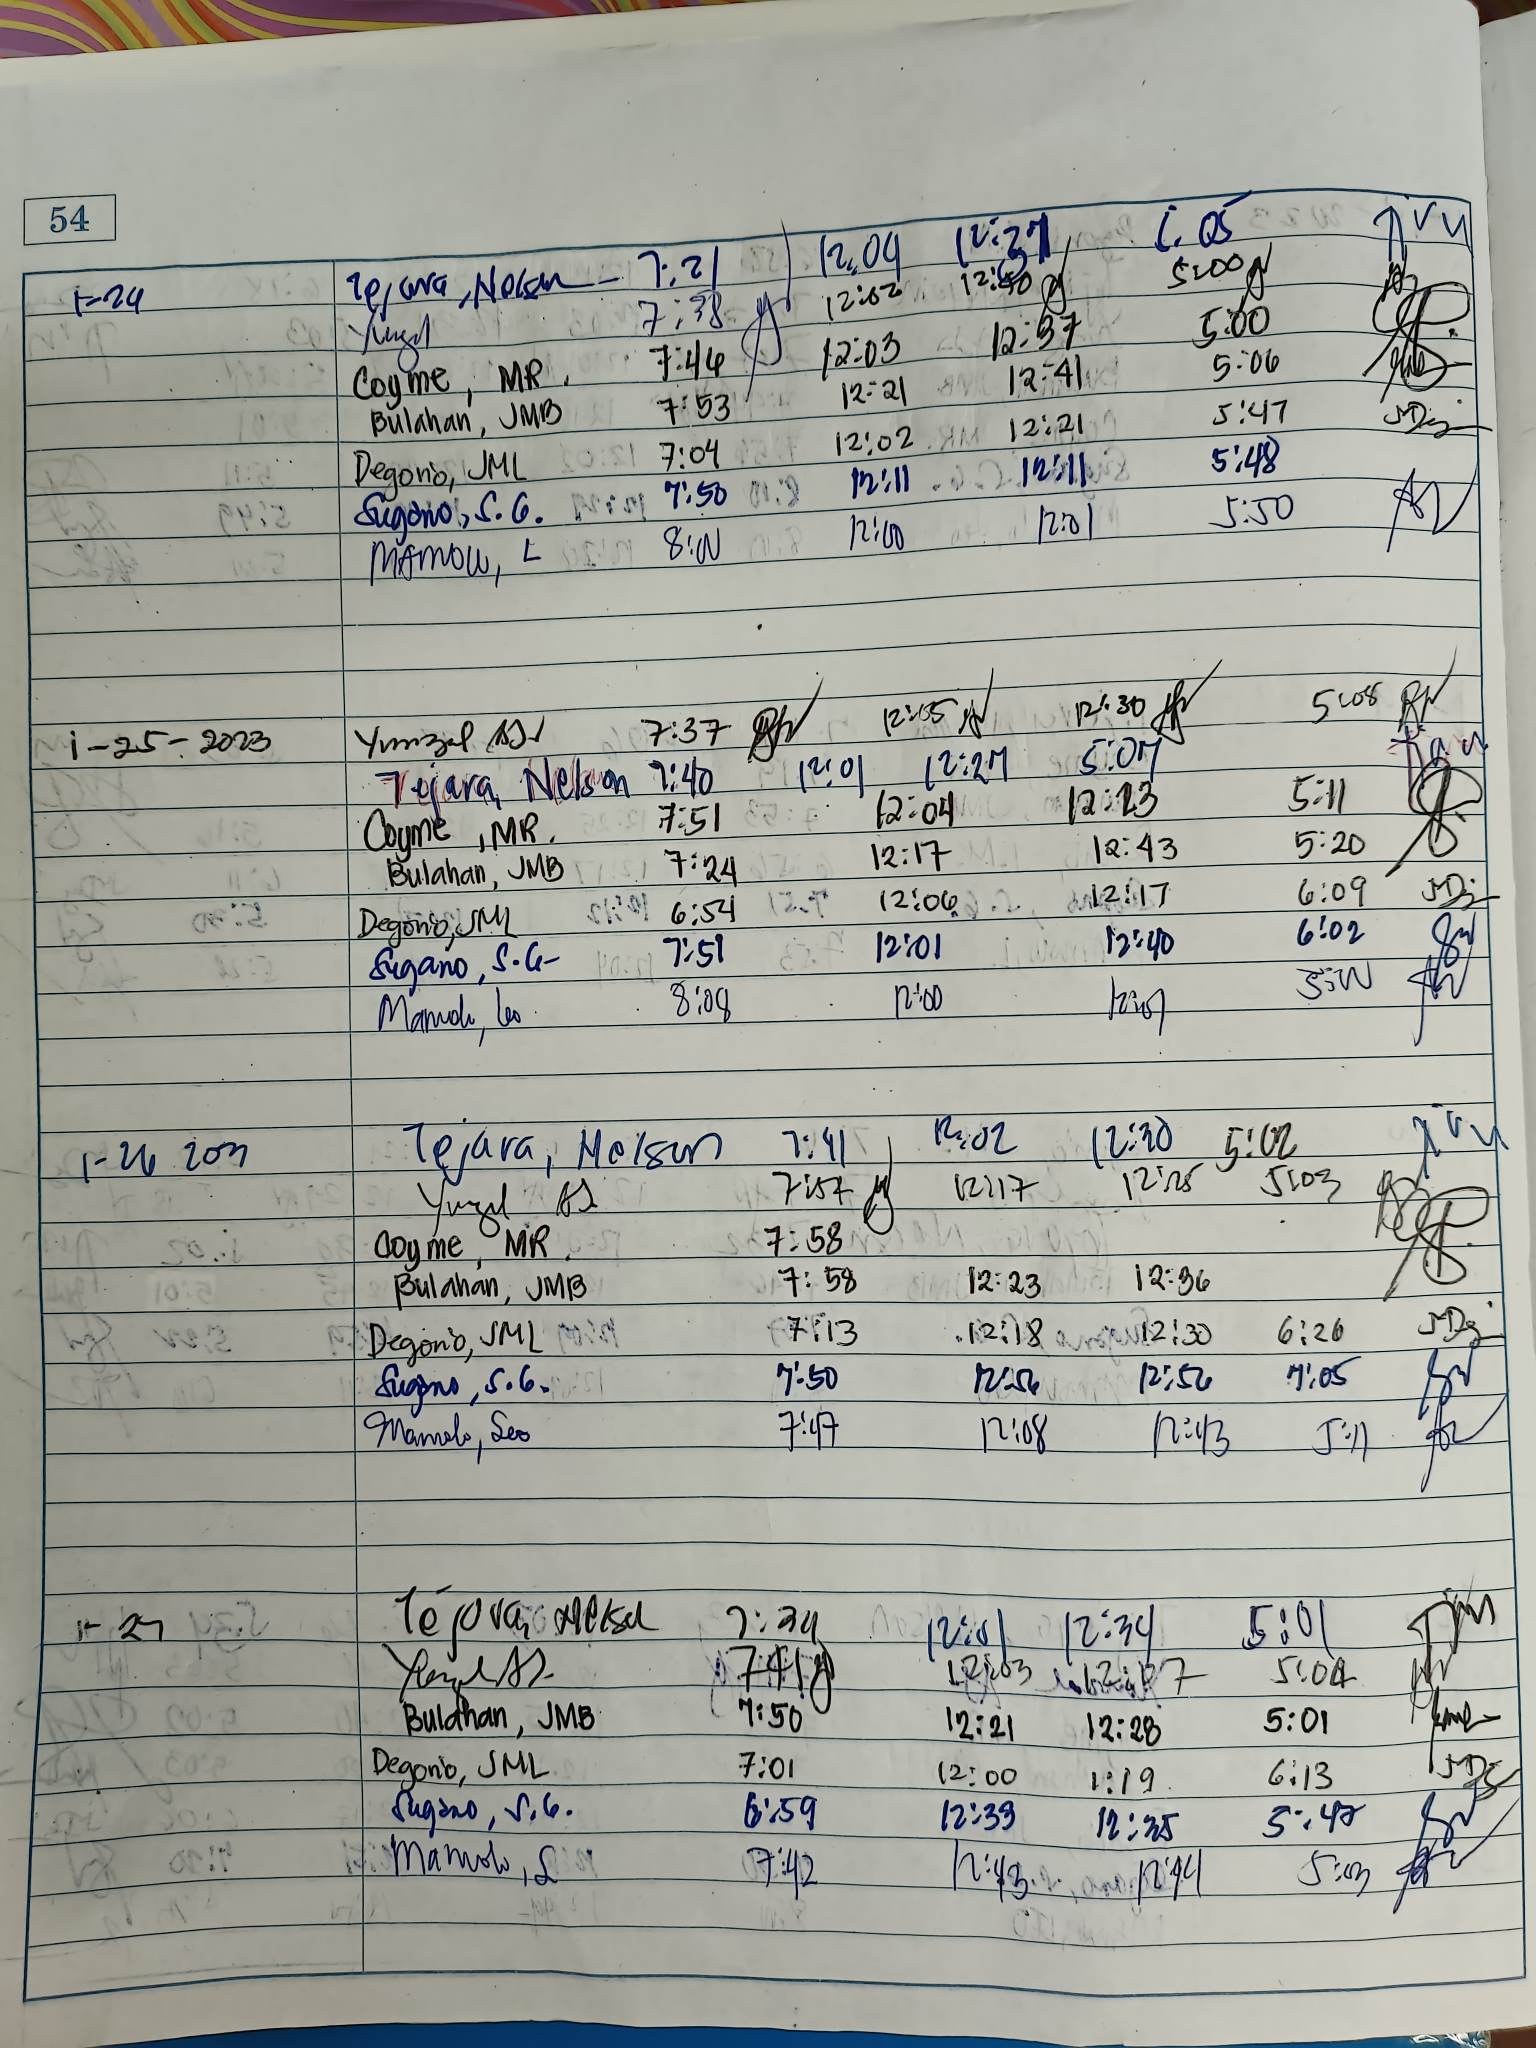 54
1-24 Tejara, Nelson 7:21 12:04 12:27
Yungl 7:38 12:02 12:40 5:00
Coyme, MR. 7:46 12:03 12:37 5:00
Bulahan, JMB 7:53 12:21 12:41 5:06
Degorio, JML 7:04 12:02 12:21 5:47
Sugano, S.G. 7:50 12:11 12:11 5:48
Mamolo, L 8:00 12:00 12:01 5:50
1-25-2023 7:37 12:05 12:30 5:08
Tejara, Nelson 7:40 12:01 12:27 5:07
Coyme, MR. 7:51 12:04 12:23 5:11
Bulahan, JMB 7:24 12:17 12:43 5:20
Degorio, JML 6:54 12:06 12:17 6:09
Sugano, S.G 7:51 12:01 12:40 6:02
Mamolo, Leo 8:08 12:00 12:01
1-26 Tejara, Nelson 7:41 12:02 12:30 5:02
7:57 12:17 12:25 5:03
Coyme, MR. 7:58
Bulahan, JMB 7:58 12:23 12:36
Degorio, JML 7:13 12:18 12:30 6:26
Sugano, S.G. 7:50 12:56 12:56 7:05
Mamolo, Leo 7:47 12:08 12:43 5:11
1-27 Tejara, Nelson 12:01 12:34 5:01
7:41 12:03 5:04
Bulahan, JMB 7:50 12:21 12:28 5:01
Degorio, JML 7:01 12:00 1:19 6:13
Sugano, S.G. 6:59 12:33 12:35 5:47
Mamolo, L 7:42 12:43 12:44 5:03